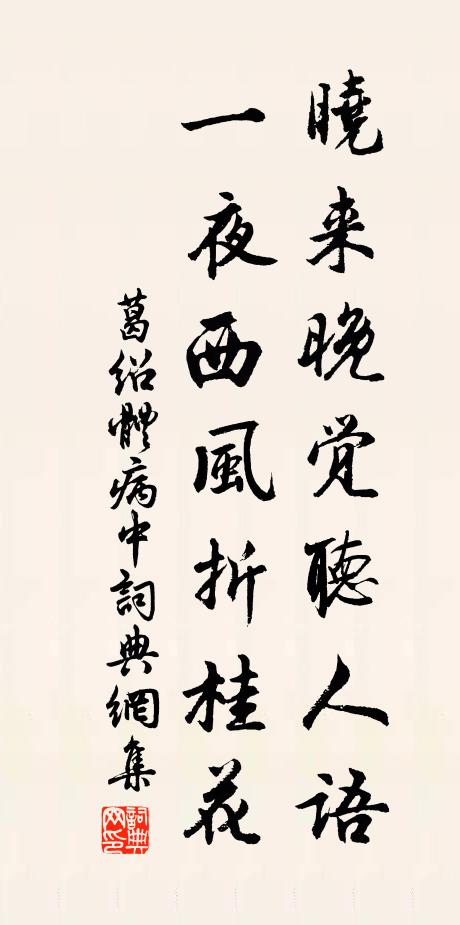 曉来晚覚聽人語
一夜西風折桂花
葛紹體病中詞典網集
詞典
网印